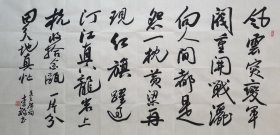 風雲突變軍
閥重開戰灑
向人間都是
怨一枕黄粱再
現紅旗躍過
汀江直下龍岩上
杭收拾金甌一片分
田分地真忙